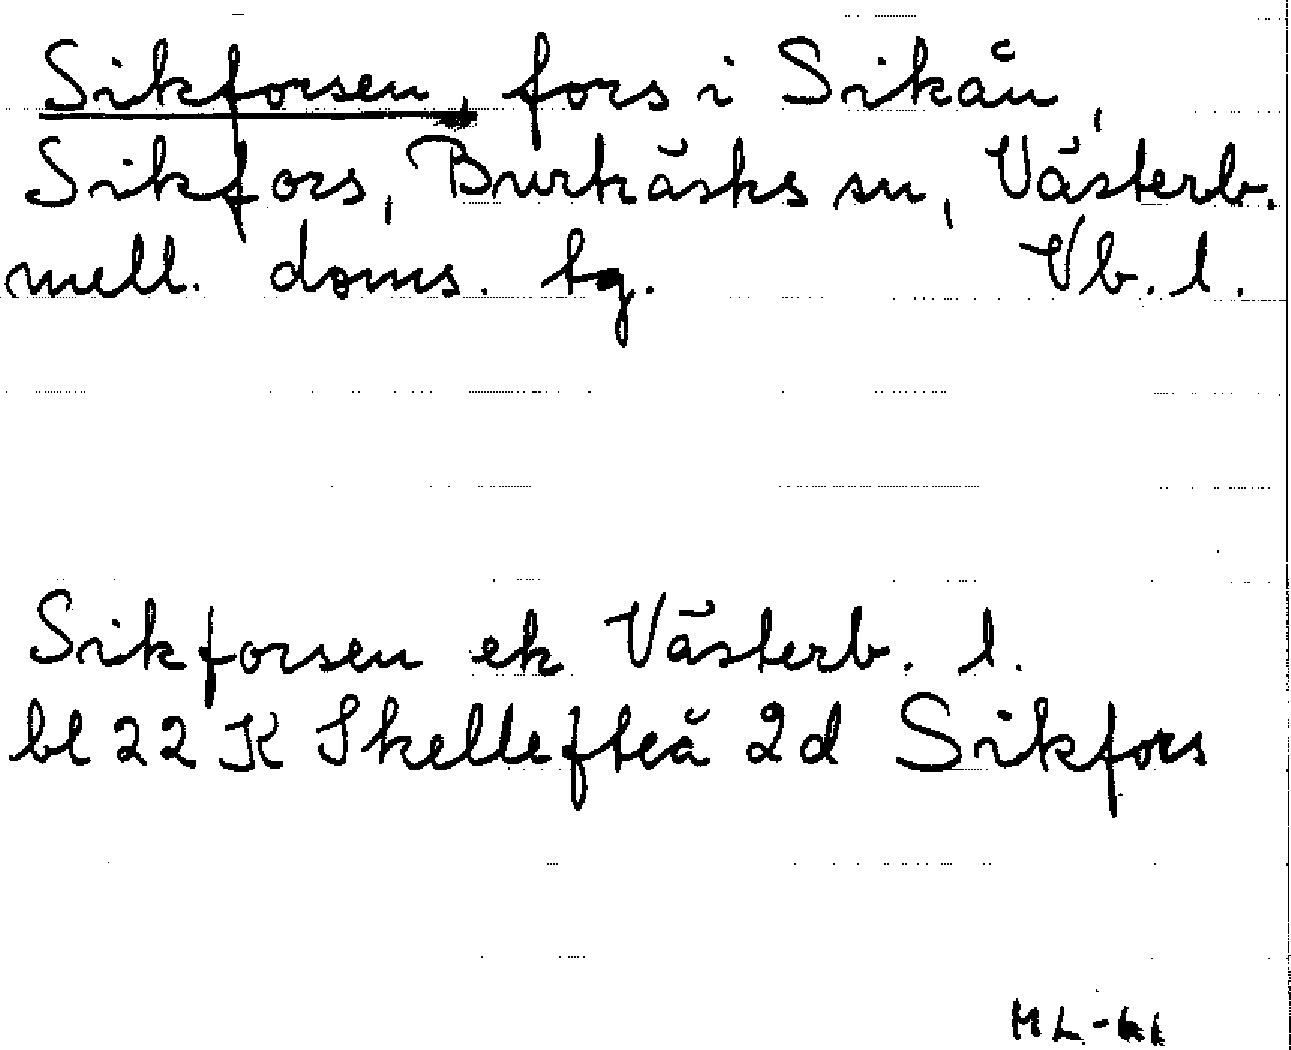 Sikforsen, fors i Sikån,
Sikfors, Burträsks sn, Västerb.
mell. doms. tg. Vb. l.
Sikforsen ek Västerb. l.
bl 22 K Skellefteå 2d Sikfors